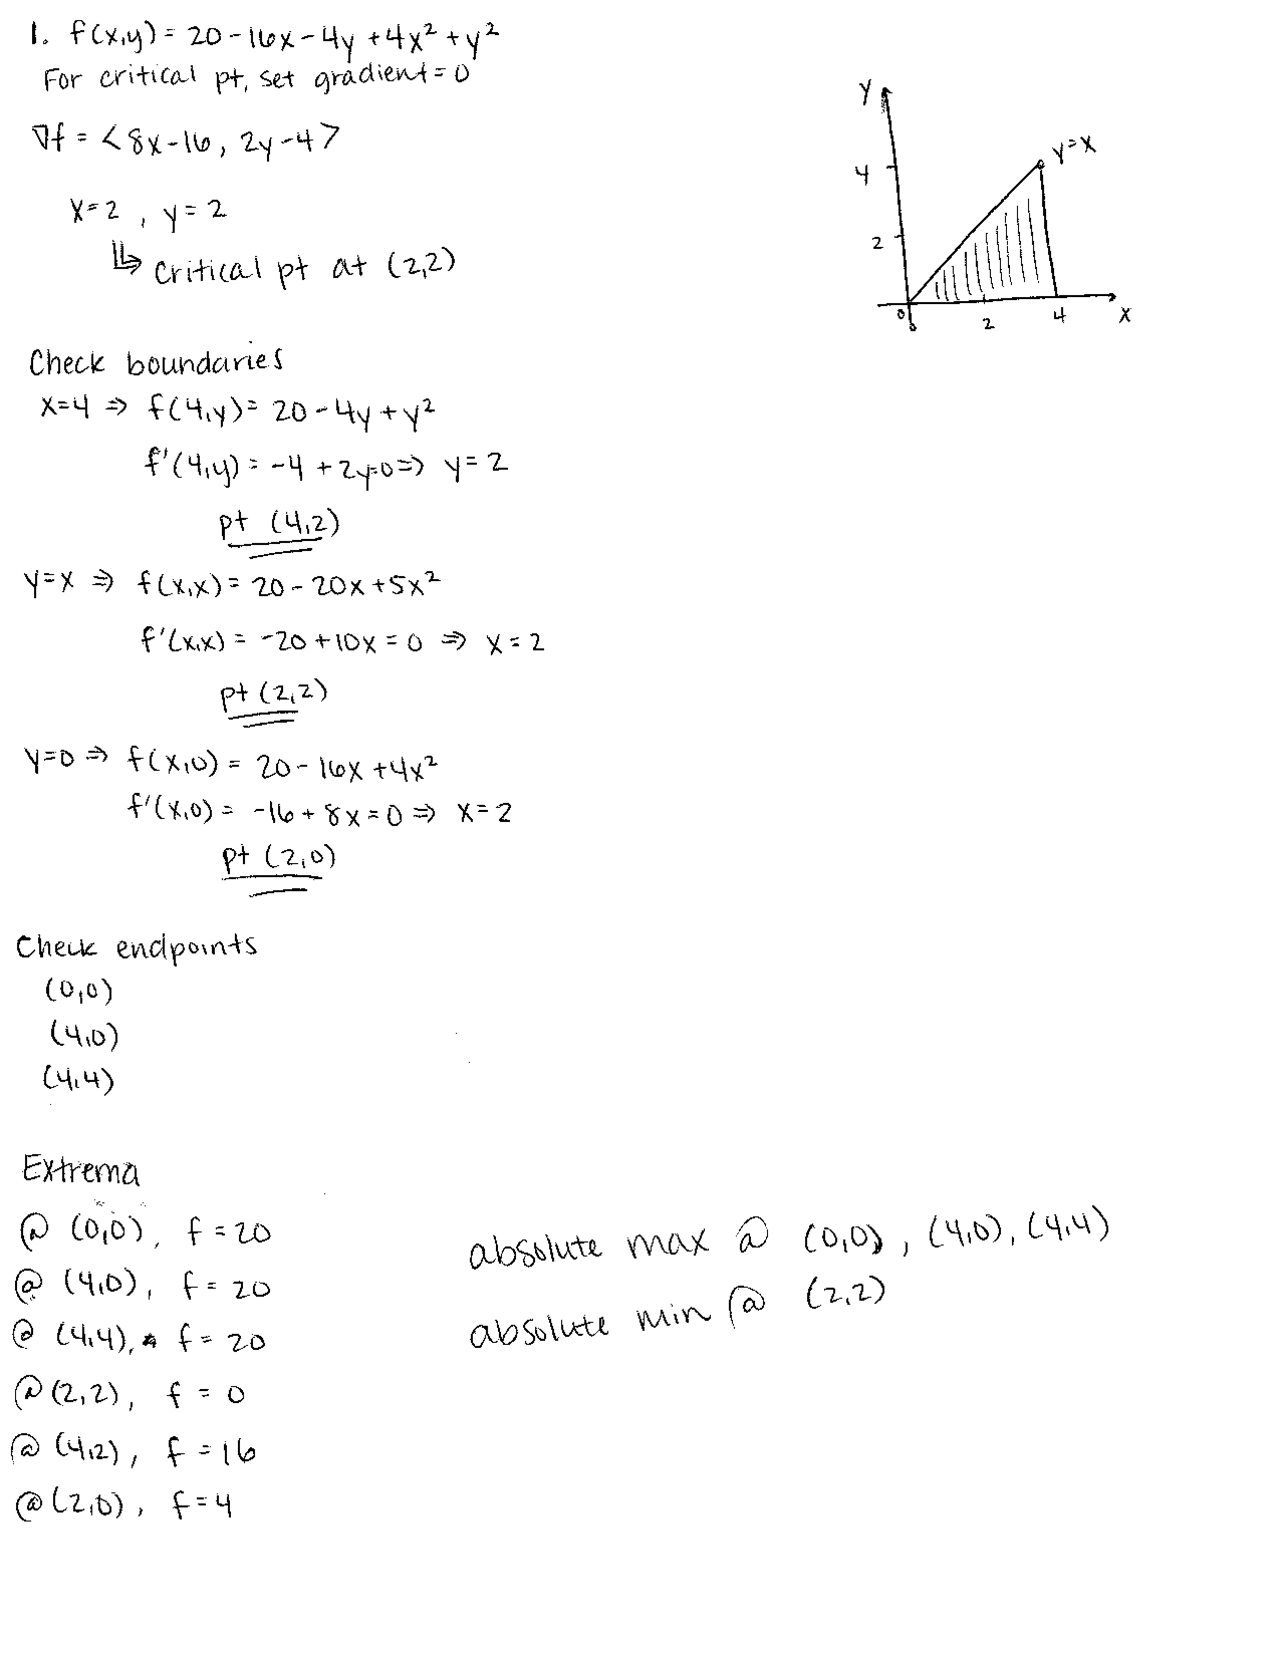 1. f(x,y) = 20 - 16x - 4y + 4x² + y²
For critical pt, set gradient = 0
∇f = <8x-16, 2y-4>
x=2, y=2
↳ critical pt at (2,2)
y
y=x
4
2
0
0
2
4
x
Check boundaries
x=4 ⇒ f(4,y) = 20 - 4y + y²
f'(4,y) = -4 + 2y=0 ⇒ y=2
pt (4,2)
y=x ⇒ f(x,x) = 20 - 20x + 5x²
f'(x,x) = -20 + 10x = 0 ⇒ x=2
pt (2,2)
y=0 ⇒ f(x,0) = 20 - 16x + 4x²
f'(x,0) = -16 + 8x = 0 ⇒ x=2
pt (2,0)
Check endpoints
(0,0)
(4,0)
(4,4)
Extrema
@ (0,0), f = 20
@ (4,0), f = 20
@ (4,4), f = 20
@ (2,2), f = 0
@ (4,2), f = 16
@ (2,0), f = 4
absolute max @ (0,0), (4,0), (4,4)
absolute min @ (2,2)